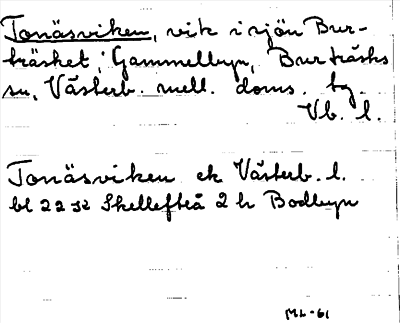 Tonäsviken, vik i sjön Bur-
träsket, Gammelbyn, Burträsks
sn, Västerb. mell. doms. bg.
Vb. l.
Tonäsviken ek Västerb. l.
bl 22 32 Skellefteå 2 h Bodbyn
ML-61